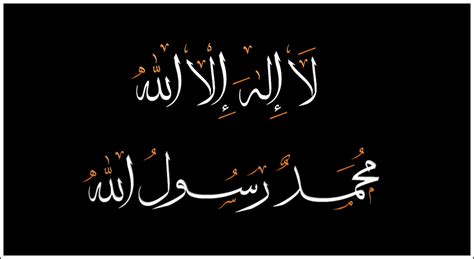 لَا إِلٰهَ إِلَّا اللهُ
مُحَمَّدٌ رَسُولُ اللهُ